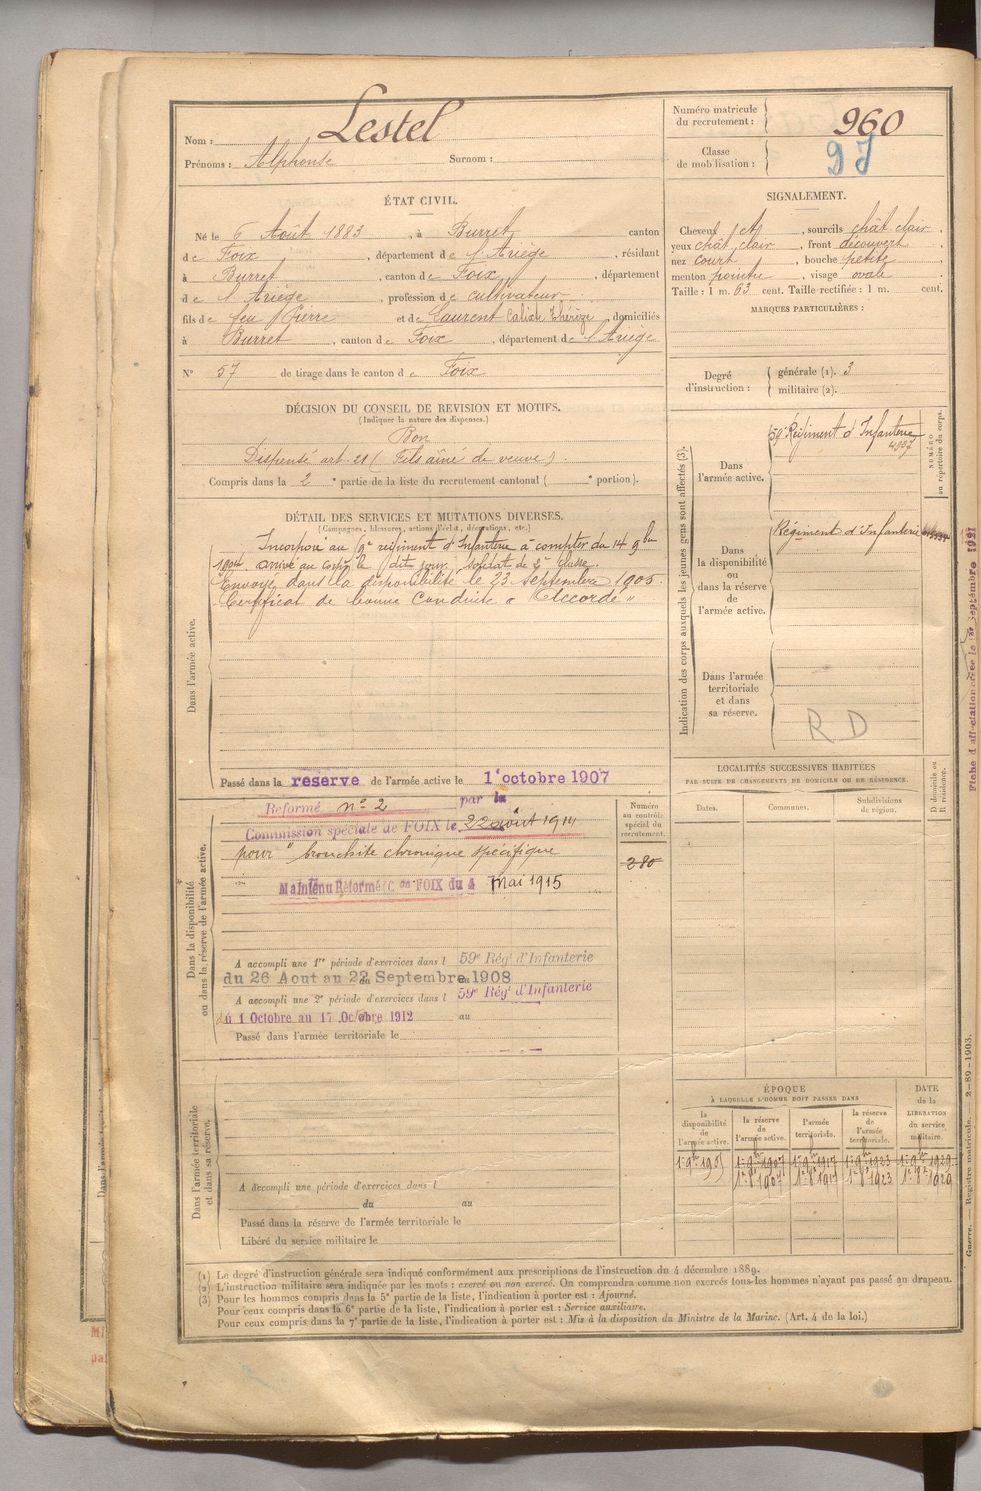 Nom : Lestel
Prénoms : Alphonse Surnom :
Numéro matricule
du recrutement : 960
Classe
de mobilisation :
ÉTAT CIVIL.
Né le 6 Août 1883, à Burret, canton
de Foix, département de l'Ariège, résidant
à Burret, canton de Foix, département
de l'Ariège, profession de cultivateur
fils de feu Pierre et de Laurent Calixte Thérèze, domiciliés
à Burret, canton de Foix, département de l'Ariège
N° 57 de tirage dans le canton de Foix
SIGNALEMENT.
Cheveux, sourcils chât. clair,
yeux chât. clair, front découvert,
nez court, bouche petite,
menton pointu, visage ovale
Taille : 1 m. 63 cent. Taille rectifiée : 1 m. cent.
MARQUES PARTICULIÈRES :
Degré
d'instruction :
générale (1). 3
militaire (2).
DÉCISION DU CONSEIL DE REVISION ET MOTIFS.
(Indiquer la nature des dispenses.)
Bon
Dispensé art. 21 (Fils aîné de veuve).
Compris dans la 2e partie de la liste du recrutement cantonal ( e portion).
DÉTAIL DES SERVICES ET MUTATIONS DIVERSES.
(Campagnes, blessures, actions d'éclat, décorations, etc.)
Incorporé au 59e régiment d'Infanterie à compter du 14 9bre
1904 arrivé au corps le dit jour, soldat de 2e classe.
Envoyé dans la disponibilité le 23 septembre 1905.
Certificat de bonne conduite « Accordé »
Dans l'armée active.
Passé dans la réserve de l'armée active le 1er octobre 1907
Indication des corps auxquels les jeunes gens sont affectés (3).
Dans
l'armée active.
59e Régiment d'Infanterie
4907
NUMÉRO
au répertoire du corps.
Dans
la disponibilité
ou
dans la réserve
de
l'armée active.
Régiment d'Infanterie
Dans l'armée
territoriale
et dans
sa réserve.
R D
Fiche d'affectation
septembre 1921
LOCALITÉS SUCCESSIVES HABITÉES
PAR SUITE DE CHANGEMENTS DE DOMICILE OU DE RÉSIDENCE.
Dates.
Communes.
Subdivisions
de région.
D. domicile ou
R. résidence.
Dans la disponibilité
ou dans la réserve de l'armée active.
Reformé n° 2 par la
Commission spéciale de FOIX le 22 août 1914
pour « bronchite chronique spécifique
Maintenu Réformé FOIX du 4 Mai 1915
Numéro
au contrôle
spécial du
recrutement.
280
A accompli une 1re période d'exercices dans l 59e Régt d'Infanterie
du 26 Aout au 22 Septembre 1908
A accompli une 2e période d'exercices dans l 59e Régt d'Infanterie
du 1 Octobre au 17 Octobre 1912 au
Passé dans l'armée territoriale le
Dans l'armée territoriale
et dans sa réserve.
A accompli une période d'exercices dans l
du au
Passé dans la réserve de l'armée territoriale le
Libéré du service militaire le
ÉPOQUE
À LAQUELLE L'HOMME DOIT PASSER DANS
DATE
de la
LIBÉRATION
du service
militaire.
la
disponibilité
de
l'armée active.
la réserve
de
l'armée active.
l'armée
territoriale.
la réserve
de
l'armée
territoriale.
1er 9bre 1907 1er 9bre 1917 1er 9bre 1923 1er 9bre 1929
1er 8bre 1907 1er 8bre 1917 1er 8bre 1923 1er 8bre 1929
(1) Le degré d'instruction générale sera indiqué conformément aux prescriptions de l'instruction du 4 décembre 1889.
(2) L'instruction militaire sera indiquée par les mots : exercé ou non exercé. On comprendra comme non exercés tous les hommes n'ayant pas passé au drapeau.
(3) Pour les hommes compris dans la 5e partie de la liste, l'indication à porter est : Ajourné.
Pour ceux compris dans la 6e partie de la liste, l'indication à porter est : Service auxiliaire.
Pour ceux compris dans la 7e partie de la liste, l'indication à porter est : Mis à la disposition du Ministre de la Marine. (Art. 4 de la loi.)
Guerre. — Registre matricule. — 2-89-1903.